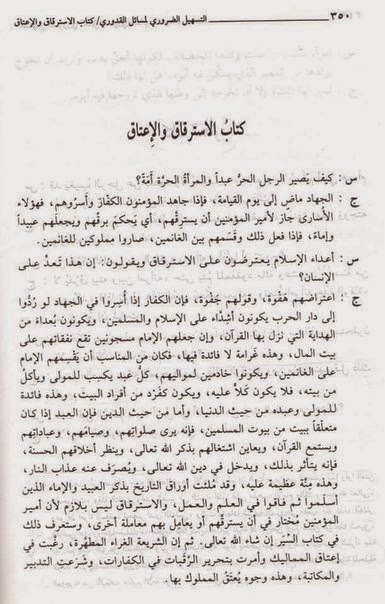 ٣٥٠ التسهيل الضروري لمسائل القدوري/ كتاب الاسترقاق والإعتاق
كتابُ الاسترقاق والإعتاق
س : كيف يَصير الرجل الحرُّ عبداً والمرأةُ الحرَّة أمَةً؟
ج : الجهاد ماض إلى يوم القيامة، فإذا جاهد المؤمنون الكفارَ وأسَروُهم، فهؤلاء
الأسارى جاز لأمير المؤمنين أن يسترِقَّهم، أي يَحكمَ برقّهم ويجعلَهم عبيداً
وإماءً، فإذا فعل ذلك وقَسَمهم بين الغانمين، صاروا مملوكين للغانمين.
س : أعداء الإسلام يعترضون على الاسترقاق ويقولون: إن هذا تعدٍّ على
الإنسان؟
ج : اعتراضهم هَفْوة، وقولهم جَفْوة، فإن الكفار إذا أُسروا في الجهاد لو رُدُّوا
إلى دار الحرب يكونون أشدَّاء على الإسلام والمسلمين، ويكونون بُعداء من
الهداية التي نزل بها القرآن، وإن جعلهم الإمام مسجونين تقع نفقاتهم على
بيت المال، وهذه غرامة لا فائدة فيها، فكان من المناسب أن يَقْسِمَهم الإمام
على الغانمين، ويكونوا خادمين لمواليهم، كلُّ عبد يكسِب للمولى ويأكل
من بيته، فلا يكون كَلاًّ عليه، ويكون كفَرْد من أفراد البيت، وهذه فائدة
للمولى وعبده من حيث الدنيا، وأما من حيث الدين فإن العبد إذا كان
متعلِّقاً ببيت من بيوت المسلمين، فإنه يرى صلواتِهم، وصيامَهم، وعباداتِهم
ويستمع القرآن، ويعاين اشتغالهم بذكر الله تعالى، وينظر أخلاقهم الحسنة،
فإنه يتأثر بذلك، ويدخل في دين الله تعالى، ويُصرَف عنه عذاب النار،
وهذه مِنَّة عظيمة عليه، وقد مُلئت أوراق التاريخ بذكر العبيد والإماء الذين
أسلموا ثم فاقوا في العلم والعمل، والاسترقاق ليس بلازم لأن أمير
المؤمنين مُختار في أن يسترقّهم أو يعامِل بهم معاملة أخرى، وستعرف ذلك
في كتاب السِّيَر إن شاء الله تعالى. ثم إن الشريعة الغراء المطهَّرة، رغَّبت في
إعتاق المماليك وأمرت بتحرير الرَّقَبات في الكفارات، وشرَعتِ التدبير
والمكاتبة، وهذه وجوه يُعتَقُ المملوك بها.